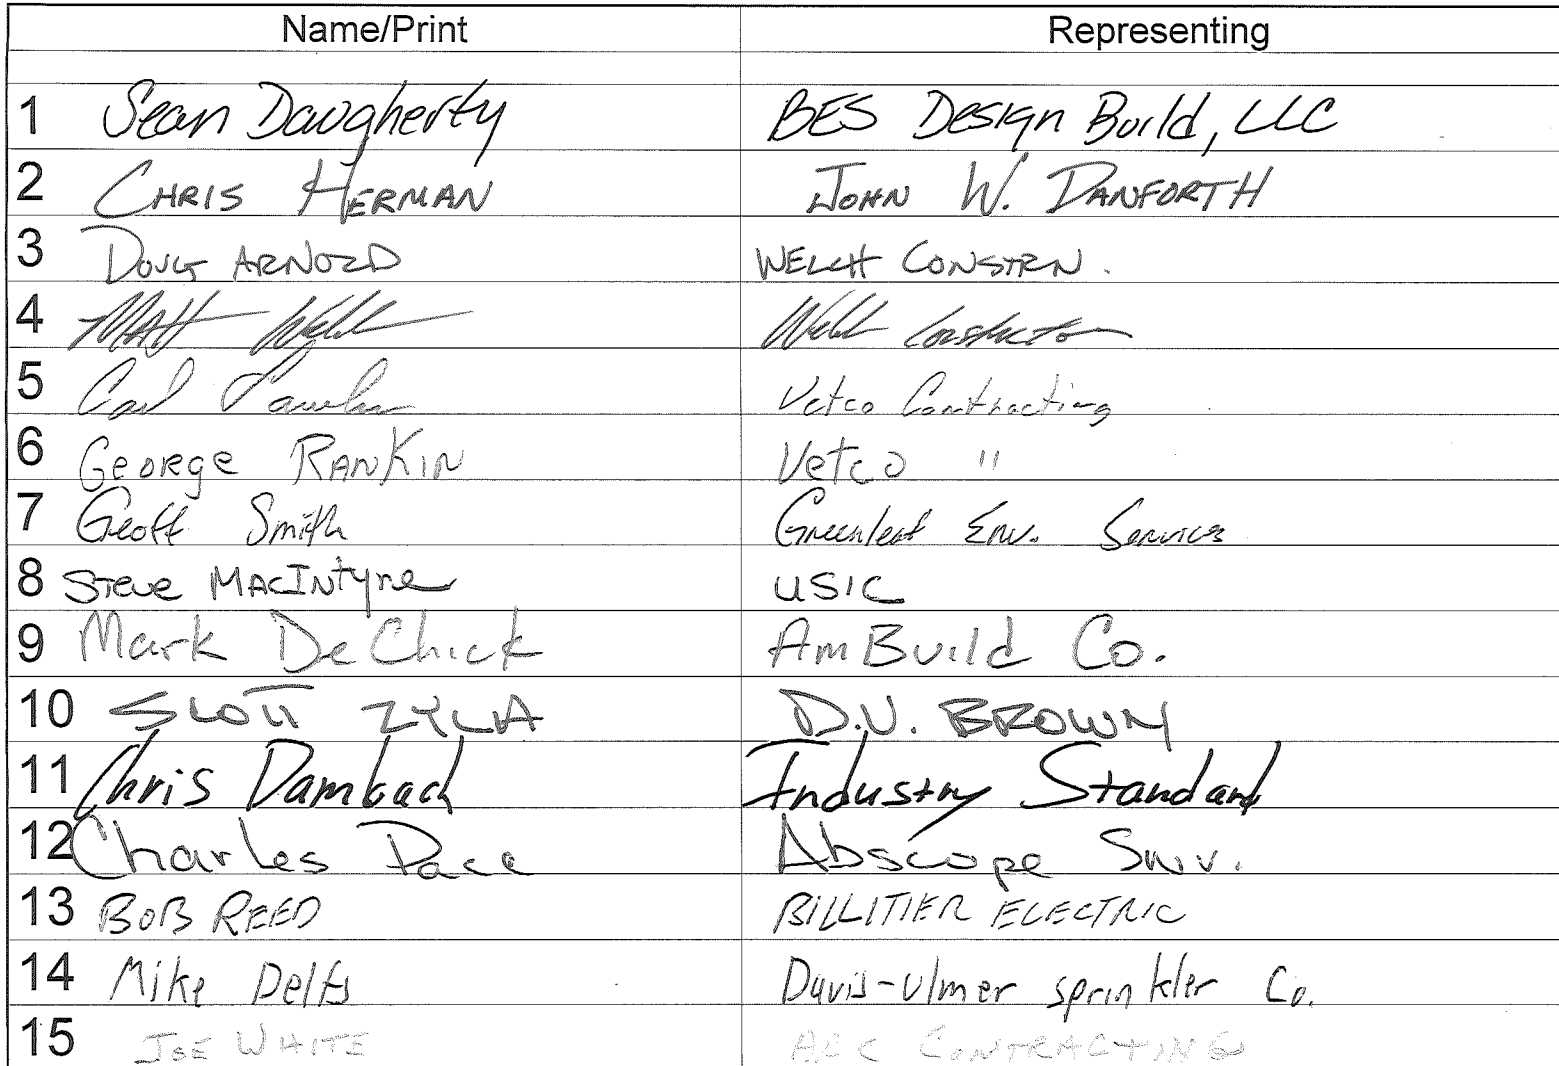 Name/Print Representing
1 Sean Daugherty BES Design Build, LLC
2 CHRIS HERMAN JOHN W. DANFORTH
3 DOUG ARNOLD WELCH CONSTRN.
4 MATT
5 Vetco Contracting
6 GEORGE RANKIN Vetco "
7 Geoff Smith Greenleaf Env. Services
8 Steve MACINtyre USIC
9 Mark DeChick AmBuild Co.
10 SCOTT ZYLA D.V. BROWN
11 Chris Dambach Industry Standard
12 Charles Pace Abscope
13 BOB REED BILLITIER ELECTRIC
14 Mike Delfs Davis-Ulmer sprinkler Co.
15 JOE WHITE CONTRACTING